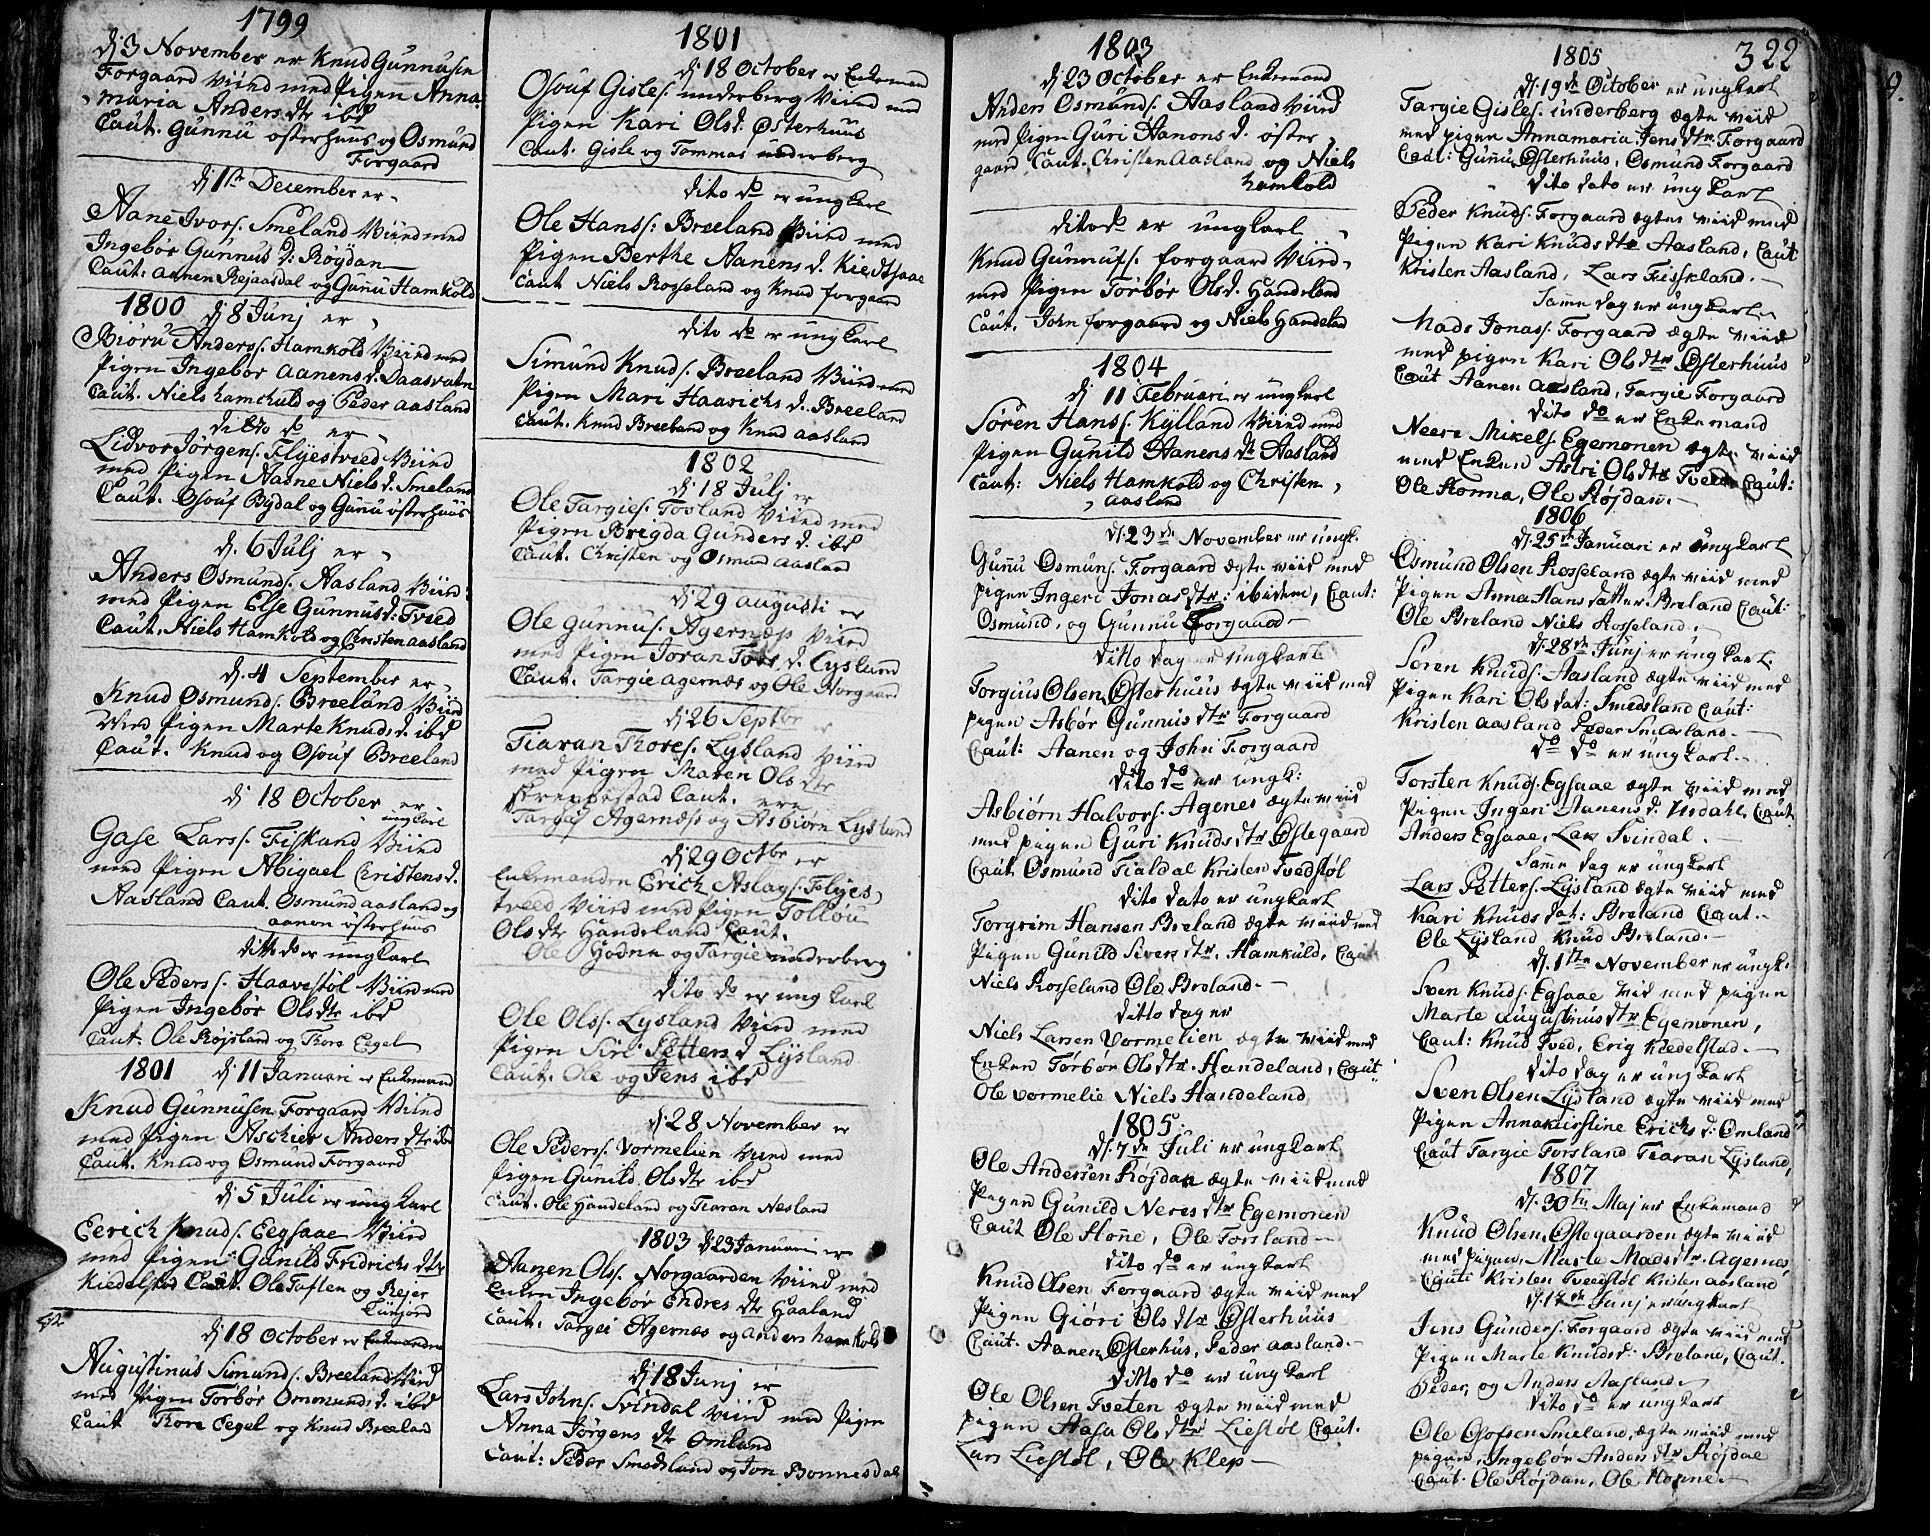 1799
dj 3 November er Knud Gunnusen
Forgaard Viied med Pigen Anna
maria Anders dtr ibd
Caut. Gunnu østerhuus og Osmund
Forgaard
dj 1ste December er
Aane Ivors. Smeland Viied med
Ingebor Gunnus d: Røÿdan
Caut: Aanen Rejaasdal og Gunu Hamkold
1800 dj 8 Junj er
Biøru Anders. Hamkold Viied med
Pigen Ingebor Aanens d. Daasvatn
Caut. Niels hamchuld og Peder Aasland
ditto do er
Lidvor Jørgens. Flÿestvied Viied
med Pigen Aasne Niels d. Smeland
Caut. Osouf Bygdal og Gunu østerhuus
dj. 6 Julj er
Anders Osmunds. Aasland Viied
med Pigen Else Gunnus d: Tvied
Caut. Niels Hamkold og Christen Aasland
dj. 4 September er
Knud Osmunds. Breeland Viied
Viied Pigen Marte Knuds d. ibd
Caut. Knud og Osouf Breeland
dj 18 October er
ungkarl
Gase Larss. Fiskland Viied
med Pigen Abigael Christens d.
Aasland Caut. Osmund Aasland og
Aanen østerhuus
ditto do er ungkarl
Ole Peders. Haavestøl Viied med
Pigen Ingebor Ols dtr ibd
Caut: Ole Røjsland og Thore Eegel
1801 dj 11 Januari er Enkemand
Knud Gunnusen Forgaard Viied
med Pigen Aschier Anders dtr ibd
Caut. Knud og Osmund Forgaard
dj 5 Juli er ung karl
Eerich Knuds. Eegsaae Viied
med Pigen Gunild Fridrichs dtr
Kiedelsted Caut. Ole Toften og Rejer
Liinjord
dj 18 October er Enkemanden
Augustinus Simunds. Breeland Viied
med Pigen Torbor Ommunds d. ibd
Caut Thore Eegel og Knud Breeland
1801
dj 18 October er Enkemand
Osouf Gisles. underberg Viied med
Pigen Kari Ols d. Østerhuus
Caut. Gisle og Tommas underberg
dito do er ung karl
Ole Hanss: Breeland Viied med
Pigen Berthe Aanens d. Kiedtsaae
Caut Niels Rosseland og Knud forgaard
dito do er ung karl
Simund Knuds. Breeland Viied med
Pigen Mari Haavichs d. Breeland
Caut. Knud Breeland og Knud Aasland
1802
dj 18 Julj er
Ole Targies. Tosland Viied med
Pigen Brigda Gunders d. ibd
Caut. Christen og Osmund Aasland
dj 29 augusti er
Ole Gunnus. Agernæss Viied
med Pigen Joran Tores d. Lysland
Caut. Targie Agernæs og Ole Norgaard
dj 26 Septbr er
Tiaran Thores. Lysland Viied
med Pigen Maren Ols dtr
Skreppestad Caut. ere
Targie Agernæss og Asbiørn Lysland
dj 29 Octbr er
Enkemanden Erich Aslags. Flyes,
tveed Viied med Pigen Tollou
Ols dtr Handeland Caut.
Ole Hodne og Targie underberg
Dito do er ung karl
Ole Olss. Lysland Viied med
Pigen Siri Petters d Lysland
Caut. Ole og Jens ibd
dj 28 November er
Ole Peders. Vormelien Viied med
Pigen Gunild. Ols dtr ibd
Caut. Ole Handeland og Tiaran Nesland
1803 dj 23 Januari er
Aanen Ols. Norgaarden Viied med
Enken Ingebor Endres dtr Haaland
Caut. Targei Agernes og anders hamkold
dj 18 Junj er
Lars Johns. Svindal Viied med Pigen
Anna Jørgens dtr Omland
Caut: Peder Smedsland og Jon Bonnesdal
1803
dj 23 October er Enkemand
Anders Osmunds. Aasland Viied
med Pigen Guri Aanons d. øster
gaard Caut. Christen Aasland og Niels
hamkold
dito do er ungkarl
Knud Gunnufs. forgaard Viied
med Pigen Torbør Ols d. Handeland
Caut. John forgaard og Niels Handeland
1804
dj 11 Februari er ungkarl
Søren Hanss. Kÿlland Viied med
Pigen Gunild Aanens dtr Aasland
Caut: Niels Hamkold og Christen
Aasland
dj. 23de November er ungk.
Gunu Osmuns. Forgaard ægte viid med
pigen Ingeri Jonas dtr: ibidem, Caut:
Osmund, og Gunnu Forgaard
Ditto dag er ungkarl
Torgius Olsen Østerhuus ægte viid med
pigen Asbør Gunnus dtr Forgaard
Caut: Aanen og John Forgaard
Dito do er ungk:
Asbiørn Halvors. Agenes ægte viid
med pigen Guri Knuds dtr Østegaard
Caut Osmund Fialdal Kristen Tvedstøl
Dito dato er ungkarl
Torgrim Hansen Breland ægte viid med
Pigen Gunild Sivers dtr. Hamkuld, Caut
Niels Rosseland Ole Breland.
Ditto dag er
Niels Larsen Vormelien ægte viid med
Enken Torbør Ols dtr. Handeland, Caut
Ole Vormelie Niels Handeland
1805:
dj. 7de Juli er ungkarl
Ole Andersen Røjdan ægte viid med
Pigen Gunild Neres dtr Egemonen
Caut Ole Hone, Ole Torsland
Dito do er ungkarl
Knud Olsen Forgaard ægte viid med
Pigen Giøri Ols dtr Østerhuus
Caut. Aanen Østerhus, Peder Aasland.
Ditto do er ungkarl
Ole Olsen Tveten ægte viid med
pigen Aasu Ols dtr Liestøl Caut.
Lars Liestøl, Ole Klep
1805 322
dj. 19de October er ungkarl
Targie Gisles. underberg ægte viid
med pigen Annamaria Jens dtr. Forgaard
Caut: Gunu Østerhuus, Osmund Forgaard
Dito dato er ung karl
Peder Knuds. Forgaard ægte viid med
Pigen Kari Knuds dtr Aasland, Caut
Kristen Aasland, Lars Fisskland.
Samme dag er ungkarl
Mads Jonas. Forgaard ægte viid
med pigen Kari Ols dtr Østerhuus
Caut Aanen Aasland, Targie Forgaard
Dito do er Enkemand
Neeri Mikels Egemonen ægte viid
med Enken Astri Ols dtr Tveed Caut:
Ole Honna, Ole Røjdan.
1806
dj. 25de Januari er ungkarl
Osmund Olsen Rosseland ægte viid med
Pigen Anna Hans datter Breland Caut:
Ole Breland Niels Rosseland.
dj. 28de Junj er ungkarl.
Søren Knuds. Aasland ægte viid med
Pigen Kari Ols dat: Smedsland Caut:
Kristen Aasland Peder Smedsland.
do do er ungkarl.
Torsten Knuds. Egsaae ægte viid med
Pigen Ingeri Aanens d. Usdahl, Caut
Anders Egsaae, Lars Svindal.
Samme dag er ungkarl
Lars Petters. Lysland ægte viid med
Kari Knuds dat: Breland Caut.
Ole Lysland Knud Breland.
dj. 1ste November er ungk:
Sven Knuds. Egsaae viid med pigen
Marte Augustinus dtr Egemonen,
Caut: Knud Tved, Erig Kiedelstad.
Dito dag er ungkarl
Sven Olsen Lysland ægte viid med
Pigen Annakirstine Erichs d: Omland
Caut Targie Forsland Tiaran Lysland,
1807
dj. 30te Maj er Enkemand
Knud Olsen Østegaarden ægte viid
med pigen, Marte Mads dtr. Agernes
Caut: Kristen Tveedstøl Kristen Aasland
dj. 14de Junj er ungkarl
Jens Gunders. Forgaard ægte viid med
Pigen Marte Knuds d: Breland, Caut.
Peder, og Anders Aasland
Dito do er ungkarl
Ole Osofsen Smeland ægte viid med
pigen, Ingebør Anders dtr Røjdae
Caut. Ole Røjdan, Ole Honne.